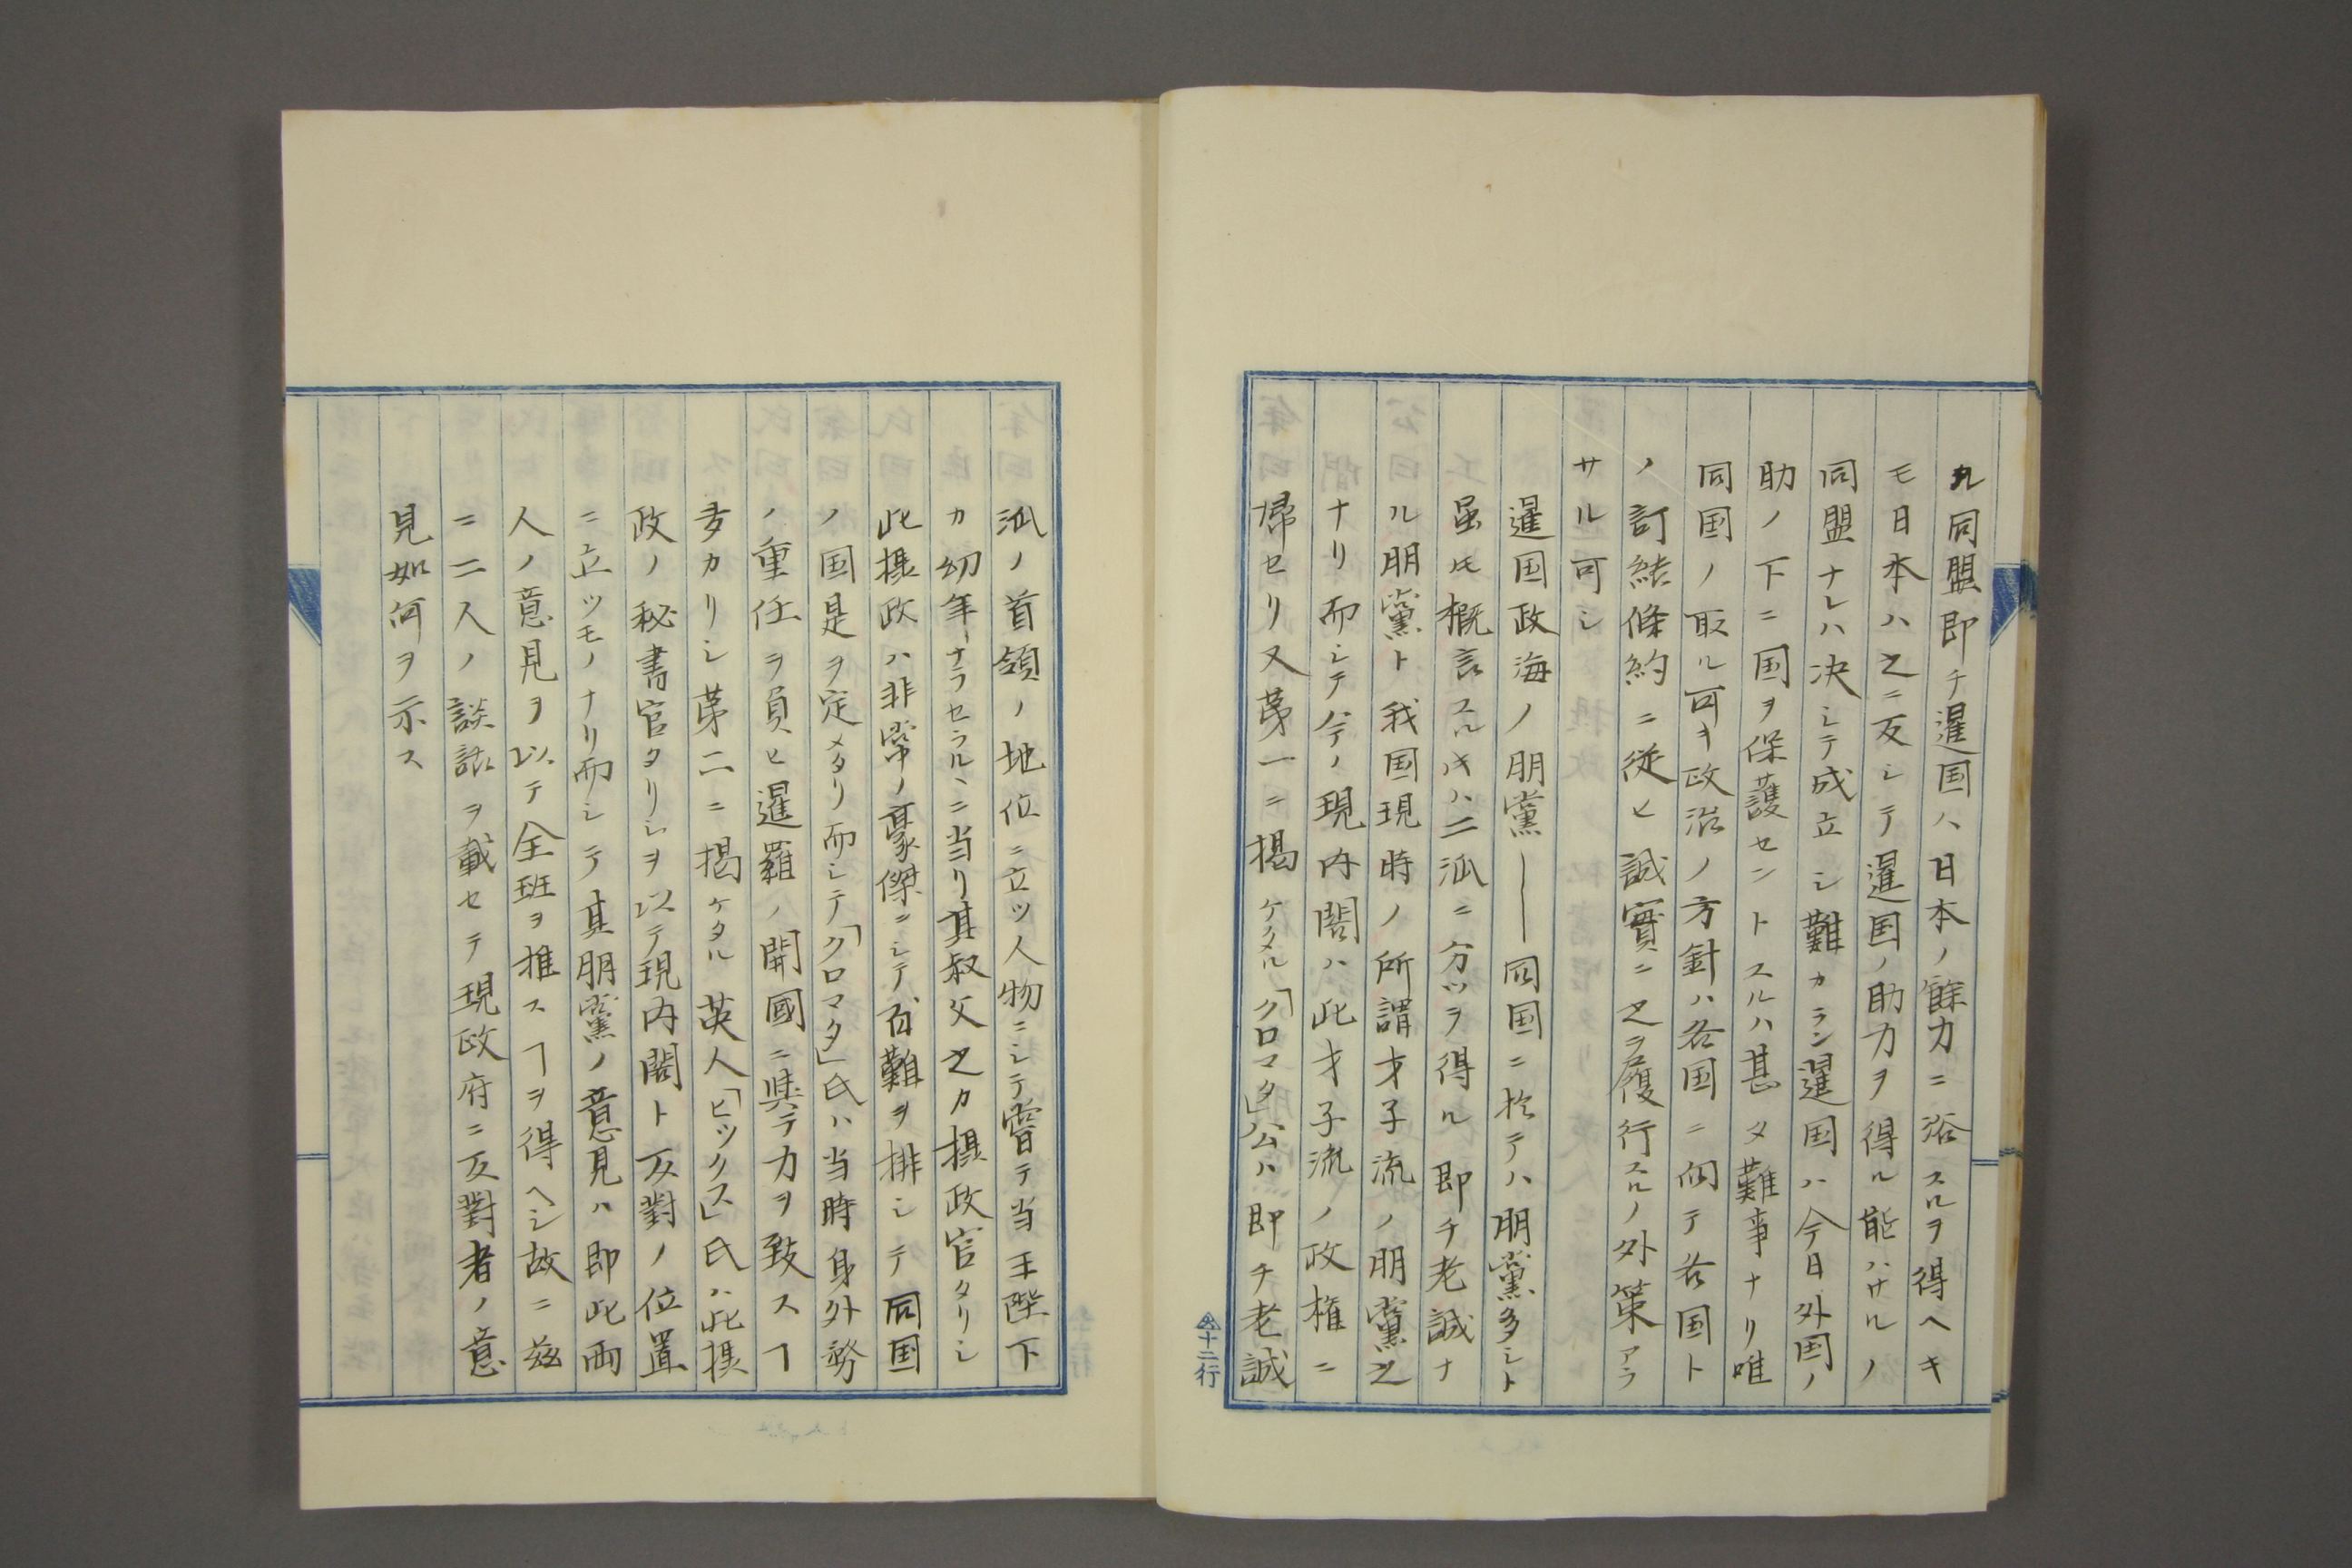 ル同盟即チ暹国ハ日本ノ餘力ニ浴スルヲ得ヘキ
モ日本ハ之ニ反シテ暹国ノ助力ヲ得ル能ハサルノ
同盟ナレハ決シテ成立シ難カラン暹国ハ今日外国ノ
助ノ下ニ国ヲ保護セントスルハ甚タ難事ナリ唯
同国ノ取ル可キ政治ノ方針ハ各国ニ向テ各国ト
ノ訂結條約ニ従ヒ誠實ニ之ヲ履行スルノ外策アラ
サル可シ
暹国政海ノ朋黨――同国ニ於テハ朋黨多シト
虽𪜈概言スル𪜈ハ二派ニ分ツヲ得ル即チ老誠ナ
ル朋黨ト我国現時ノ所謂才子流ノ朋黨之
ナリ而シテ今ノ現内閣ハ此才子流ノ政権ニ
帰セリ又苐一ニ掲ケタル「クロマタ」公ハ即チ老誠
派ノ首領ノ地位ニ立ツ人物ニシテ嘗テ当王陛下
カ幼年ナラセラルヽニ当リ其叔父之カ摂政官タリシ
此摂政ハ非常ノ豪傑ニシテ百難ヲ排シテ同国
ノ国是ヲ定メタリ而シテ「クロマタ」氏ハ当時身外務
ノ重任ヲ負ヒ暹羅ノ開國ニ與テ力ヲ致スヿ
多カリシ苐二ニ掲ケタル英人「ヒックス」氏ハ此摂
政ノ秘書官タリシヲ以テ現内閣ト反對ノ位置
ニ立ツモノナリ而シテ其朋黨ノ意見ハ即此両
人ノ意見ヲ以テ全班ヲ推スヿヲ得ヘシ故ニ茲
ニ二人ノ談話ヲ載セテ現政府ニ反對者ノ意
見如何ヲ示ス
十二行